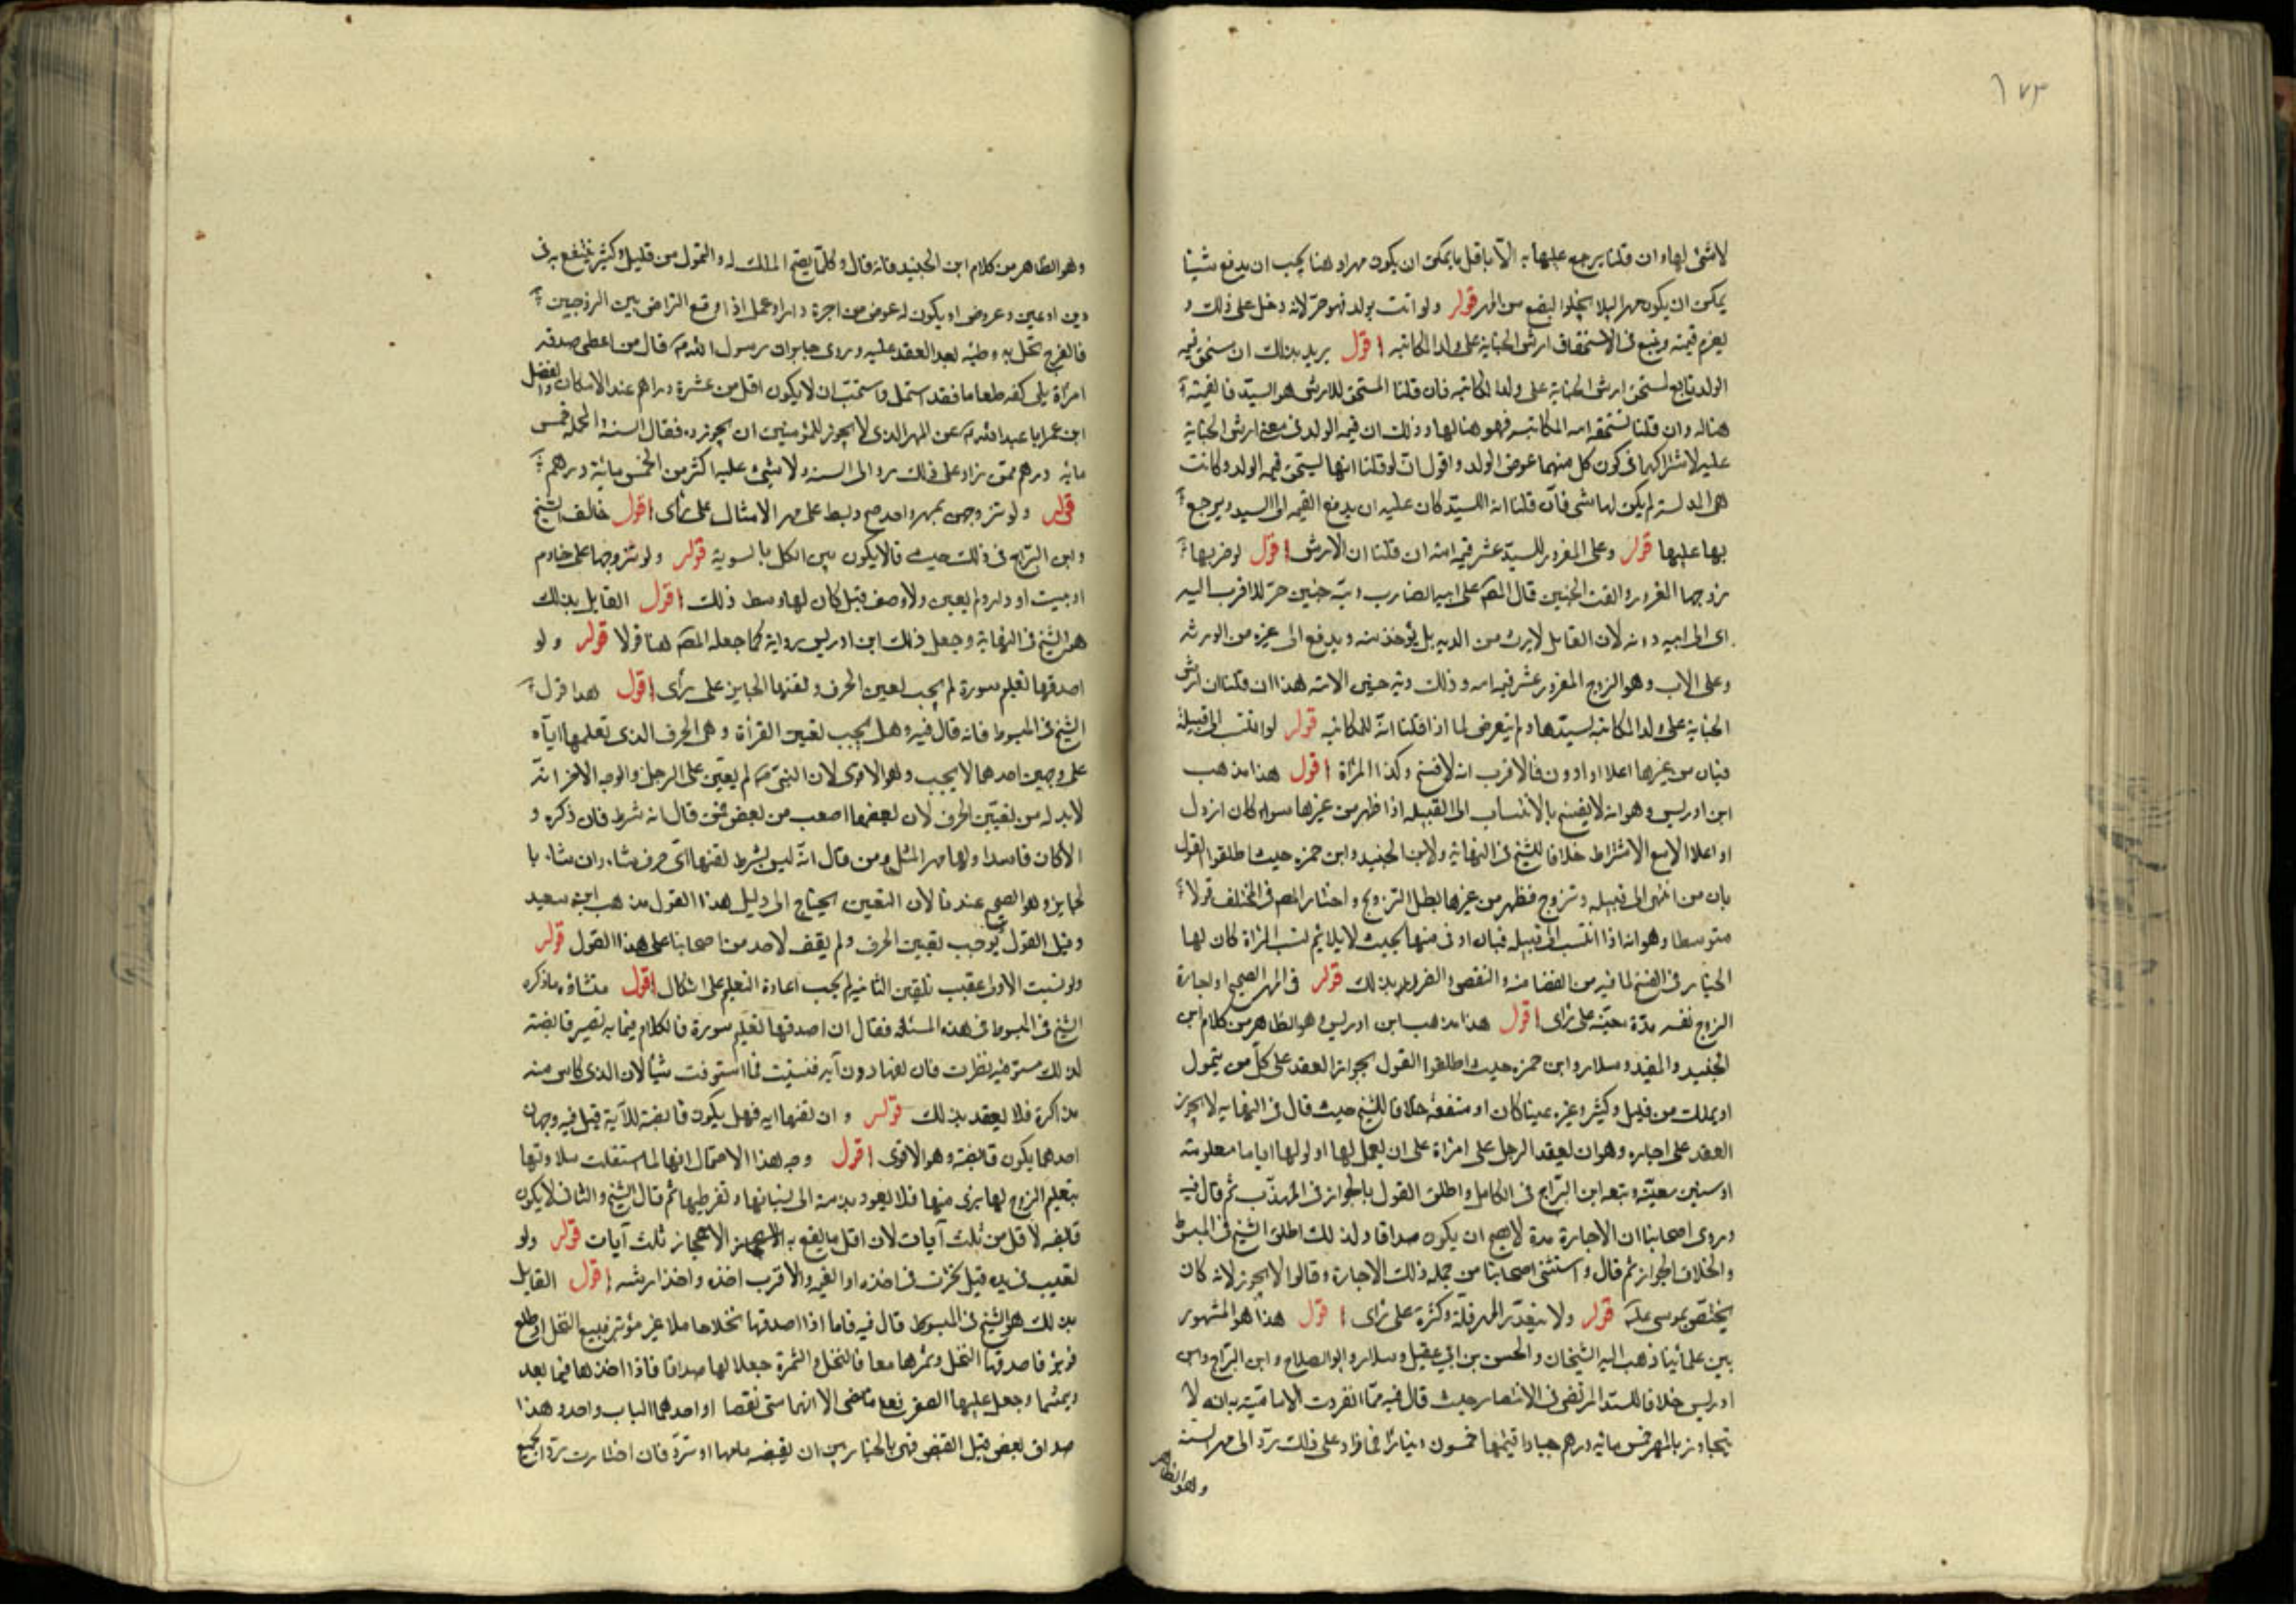 ١٧٣
لا شئ لها وان قلنا يرجع عليها به الا باقل ما يمكن ان يكون مهرا وهنا يجب ان يدفع شيئا
يمكن ان يكون مهرا لئلا يخلوا البضع من المهر قوله ولو اتت بولد فهو حر لانه دخل على ذلك و
يغرم قيمته ويتبع في الاستحقاق ارش الجناية على ولد المكاتبه اقول يريد بذلك ان مستحق قيمه
الولد تابع لمستحق ارش الجناية على ولد المكاتبه فان قلنا المستحق للارش هو السيد فالقيمة
هنا له وان قلنا تستحقه امه المكاتبه فهو هنا لها وذلك ان قيمه الولد في معنى ارش الجناية
عليه لاشتراكهما في كون كل منهما عوض الولد واقول ان لو قلنا انها تستحق قيمه الولد وكانت
هي المدلسة لم يكن لها شئ فان قلنا انه للسيد كان عليه ان يدفع القيمه الى السيد ويرجع
بها عليها قوله وعلى المغرور للسيد عشر قيمه امه ان قلنا ان الارش اقول لو ضربها
زوجها المغرور والقت الجنين قال المصه على ابيه الضارب دية جنين حر للاقرب اليه
اى الى ابيه دونه لان القاتل لا يرث من الديه بل يؤخذ منه ويدفع الى غيره من الورثه
وعلى الاب وهو الزوج المغرور عشر قيمه امه وذلك دية جنين الامة هذا ان قلنا ان ارش
الجناية على ولد المكاتبه لسيدها ولم يتعرض لما اذا قلنا انه للمكاتبه قوله لو انتسب الى قبيلة
فبان من غيرها اعلا او ادون فالاقرب انه لا فسخ وكذا المرأة اقول هذا مذهب
ابن ادريس وهو انه لا يفسخ بالانتساب الى القبيله اذا ظهر من غيرها سواء كان انزل
او اعلا الا مع الاشتراط خلافا للشيخ في النهاية ولابن الجنيد وابن حمزه حيث اطلقوا القول
بان من انتمى الى قبيله وتزوج فظهر من غيرها بطل التزويج واختار المصه في المختلف قولا
متوسطا وهو انه اذا انتسب الى قبيله فبان ادنى منها بحيث لا يلائم نسب المرأة كان لها
الخيار في الفسخ لما فيه من الغضاضة والنقص والضرر بذلك قوله في المهر الصحيح او اجارة
الزوج نفسه مدة معينة على رأى اقول هذا مذهب ابن ادريس وهو الظاهر من كلام ابن
الجنيد والمفيد وسلار وابن حمزه حيث اطلقوا القول بجواز العقد على كل من يتمول
او يملك من قليل وكثير وغيره عينا كان او منفعه خلافا للشيخ حيث قال في النهايه لا يجوز
العقد على اجاره وهو ان يعقد الرجل على امرأة على ان يعمل لها او لوليها اياما معلومة
او سنين معينة وتبعه ابن البراج في الكامل واطلق القول بالجواز في المهذب ثم قال فيه
وروى اصحابنا ان الاجارة مدة لا يصح ان يكون صداقا ولذلك اطلق الشيخ في المبسوط
والخلاف الجواز ثم قال واستثنى اصحابنا من جمله ذلك الاجارة وقالوا لا يجوز لانه كان
يختص بموسى عليه قوله ولا يتقدر المهر قلة وكثرة على رأى اقول هذا هو المشهور
بين علمائنا ذهب اليه الشيخان والحسن بن ابي عقيل وسلار وابو الصلاح وابن البراج وابن
ادريس خلافا للسيد المرتضى في الانتصار حيث قال فيه مما انفردت الاماميه به انه لا
يتجاوز بالمهر خمس مائه درهم جيادا قيمتها خمسون دينارا فما زاد على ذلك رد الى مهر السنة
وهو الظاهر
وهو الظاهر من كلام ابن الجنيد فانه قال وكلما يصح الملك له والتمول من قليل وكثير ينتفع به في
دين او عين وعروض او يكون له عوض من اجرة دار او عمل اذا وقع التراضى بين الزوجين
فالفرج تحل به وطئه بعد العقد عليه وروى جابر ان رسول الله صه قال من اعطى صدقه
امرأة ملى كفه طعاما فقد استحل واستحب ان لا يكون اقل من عشرة دراهم عند الامكان والفضل
ابن عمر ابا عبد الله عه عن المهر الذى لا يجوز للمؤمنين ان يجوزه فقال السنة المحمدية خمس
مائه درهم فمن زاد على ذلك رد الى السنة ولا شئ عليه اكثر من الخمس مائة درهم
قوله ولو تزوجهن بمهر واحد صح وبسط على مهر الامثال على رأى اقول خالف الشيخ
وابن البراج في ذلك حيث قالا يكون بين الكل بالسوية قوله ولو تزوجها على خادم
او بيت او دار ولم يعين ولا وصف قيل كان لها وسط ذلك اقول القايل بذلك
هو الشيخ في النهاية وجعل ذلك ابن ادريس رواية كما جعله المصه هنا قولا قوله ولو
اصدقها تعليم سورة لم يجب تعيين الحرف ولقنها الجايز على رأى اقول هذا قول
الشيخ في المبسوط فانه قال فيه وهل يجب تعيين القرأة وهى الحرف الذى تعلمها اياه
على وجهين احدهما لا يجب وهو الاقوى لان النبي صه لم يعين على الرجل والوجه الاخر انه
لا بد له من تعيين الحرف لان بعضها اصعب من بعض فمن قال انه شرط فان ذكره و
الا كان فاسدا ولها مهر المثل ومن قال انه ليس بشرط لقنها اى حرف شاء وان شاء با
لجايز وهو الصحيح عندنا لان التعيين يحتاج الى دليل هذا القول مذهب ابن سعيد
وقيل القول بوجوب تعيين الحرف ولم يقف لاحد من اصحابنا على هذا القول قوله
ولو نسيت الاولى عقيب تلقين الثانيه لم يجب اعادة التعليم على اشكال اقول منشاؤه ما ذكره
الشيخ في المبسوط في هذه المسئلة فقال ان اصدقها تعليم سورة فالكلام فيما به تصير قابضة
لذلك مستوفيه نظرت فان لقنها دون آيه فنسيت فما استوفت شيئا لان الذى كان منه
مذاكرة فلا يعقد بذلك قوله وان لقنها ايه فهل يكون قابضة للآية قيل فيه وجهان
احدهما يكون قابضة وهو الاقوى اقول وجه هذا الاحتمال انها لما استقلت بتلاوتها
بتعليم الزوج لها برى منها فلا يعود بذمته الى نسيانها وتفريطها ثم قال الشيخ والثانى لا يكون
قابضه لاقل من ثلث آيات لان اقل ما يقع به الاعجاز ثلث آيات قوله ولو
تعيب في يده قيل تخيرت في اخذه او القيمه والاقرب اخذه واخذ ارشه اقول القايل
بذلك هو الشيخ في المبسوط قال فيه فاما اذا اصدقها نخلا حاملا غير مؤبر فبيع النخل او طلع
فاصدقها النخل وثمرها معا فالنخل والثمرة جعلا لها صداقا فاذا اخذها فيما بعد
وجعل عليها الصقر الا انهما متى نقصا او احدهما الباب واحد وهذا
صداق بعض قبل القبض فهى بالخيار بين ان يقبضه ناقصا او ترده فان اختارت رد الجميع